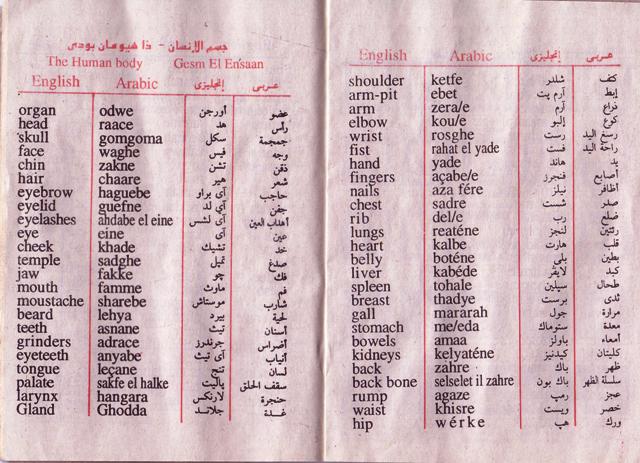 جسم الإنسان - ذا هيومان بودى
The Human body Gesm El En'saan
English Arabic إنجليزى عربى
organ odwe أورجن عضو
head raace هد رأس
skull gomgoma سكل جمجمة
face waghe فيس وجه
chin zakne تشن ذقن
hair chaare هير شعر
eyebrow haguebe آى براو حاجب
eyelid guefne آى لد جفن
eyelashes ahdabe el eine آى لشس أهداب العين
eye eine آى عين
cheek khade تشيك خد
temple sadghe تمبل صدغ
jaw fakke چو فك
mouth famme ماوث فم
moustache sharebe موستاش شارب
beard lehya بيرد لحية
teeth asnane تيث أسنان
grinders adrace جرندرز أضراس
eyeteeth anyabe آى تيث أنياب
tongue leçane تنج لسان
palate sakfe el halke پاليت سقف الحلق
larynx hangara لارنكس حنجرة
Gland Ghodda جلاند غدة
English Arabic إنجليزى عربى
shoulder ketfe شلدر كتف
arm-pit ebet آرم پت إبط
arm zera/e آرم ذراع
elbow kou/e إلبو كوع
wrist rosghe رست رسغ اليد
fist rahat el yade فست راحة اليد
hand yade هاند يد
fingers açabe/e فنجرز أصابع
nails aza fére نيلز أظافر
chest sadre شست صدر
rib del/e رب ضلع
lungs reaténe لنجز رئتين
heart kalbe هارت قلب
belly boténe بلى بطين
liver kabéde لايڤر كبد
spleen tohale سپلين طحال
breast thadye برست ثدى
gall mararah جول مرارة
stomach me/eda ستوماك معدة
bowels amaa باولز أمعاء
kidneys kelyaténe كيدنيز كليتان
back zahre باك ظهر
back bone selselet il zahre باك بون سلسلة الظهر
rump agaze رمپ عجز
waist khisre ويست خصر
hip wérke هپ ورك